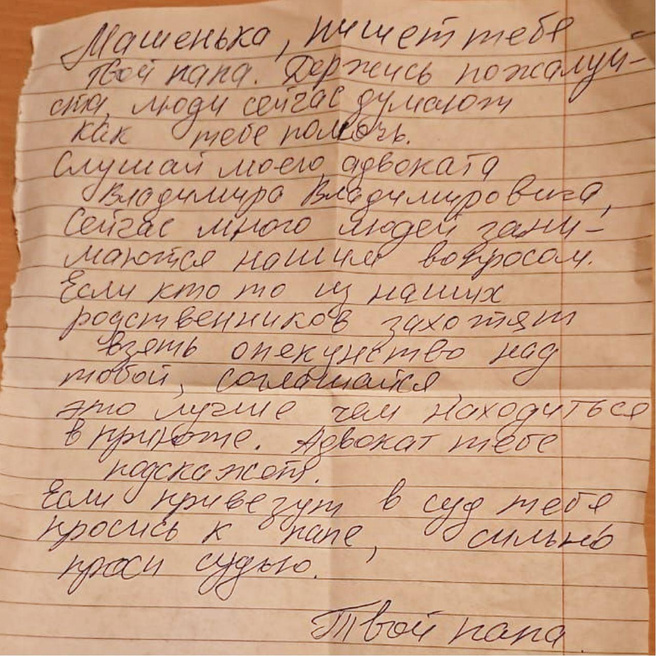 Машенька, пишет тебе
твой папа. Держись пожалуй-
ста, люди сейчас думают
как тебе помочь.
Слушай моего адвоката
Владимира Владимировича,
Сейчас много людей зани-
маются нашим вопросом.
Если кто то из наших
родственников захотят
взять опекунство над
тобой, соглашайся
это лучше чем находиться
в приюте. Адвокат тебе
подскажет.
Если привезут в суд тебя
просись к папе, сильно
проси судью.
Твой папа.